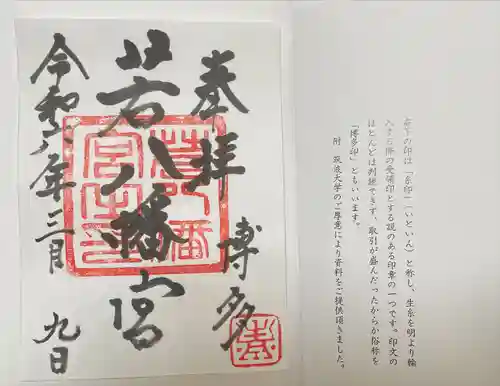 奉拝
博多
若八幡宮
令和六年三月
九日
若八幡
宮之印
右下の印は「糸印」（いといん）と称し、生糸を明より輸
入する際の受領印とする説のある印章の一つです。印文の
ほとんどは判読できず、取引が盛んだったからか俗称を
「博多印」ともいいます。
附 筑波大学のご厚意により資料をご提供頂きました。